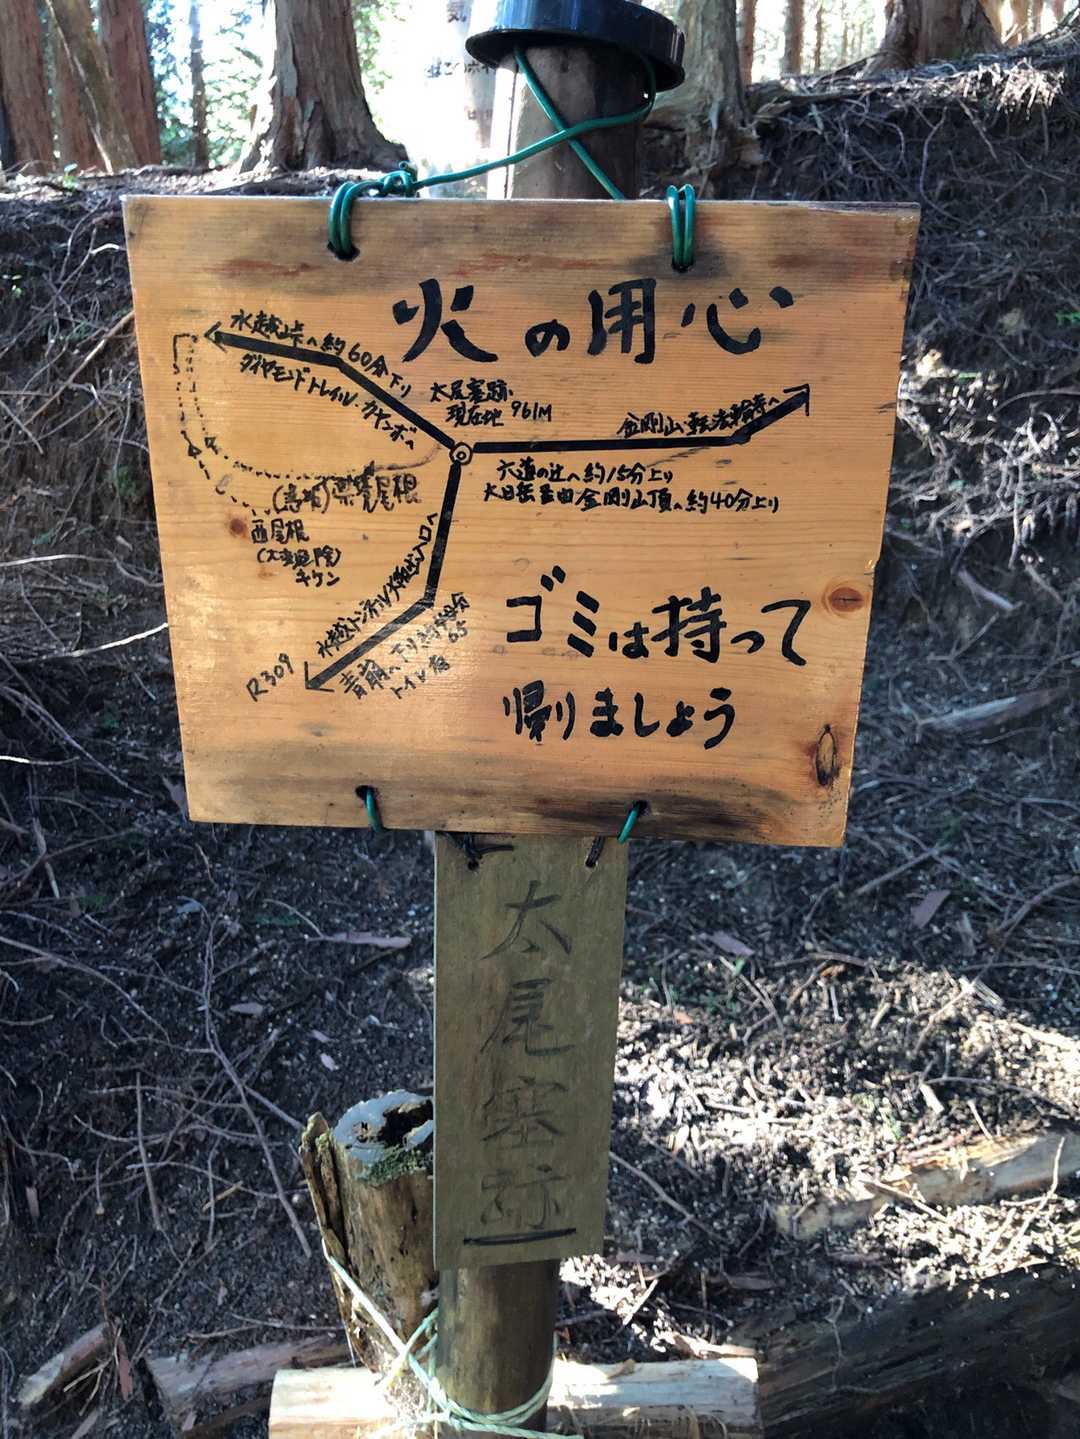 火の用心
水越峠へ約60分下り
ダイヤモンドトレイル・カヤンボへ
太尾塞跡
現在地 961M
金剛山・転法輪寺へ
六道の辻へ約15分上り
大日岳経由金剛山頂へ約40分上り
尾根
西尾根
キケン
水越トンネル
入口へ
R309
青崩へ下り約
65
トイレ有
ゴミは持って
帰りましょう
太尾塞跡